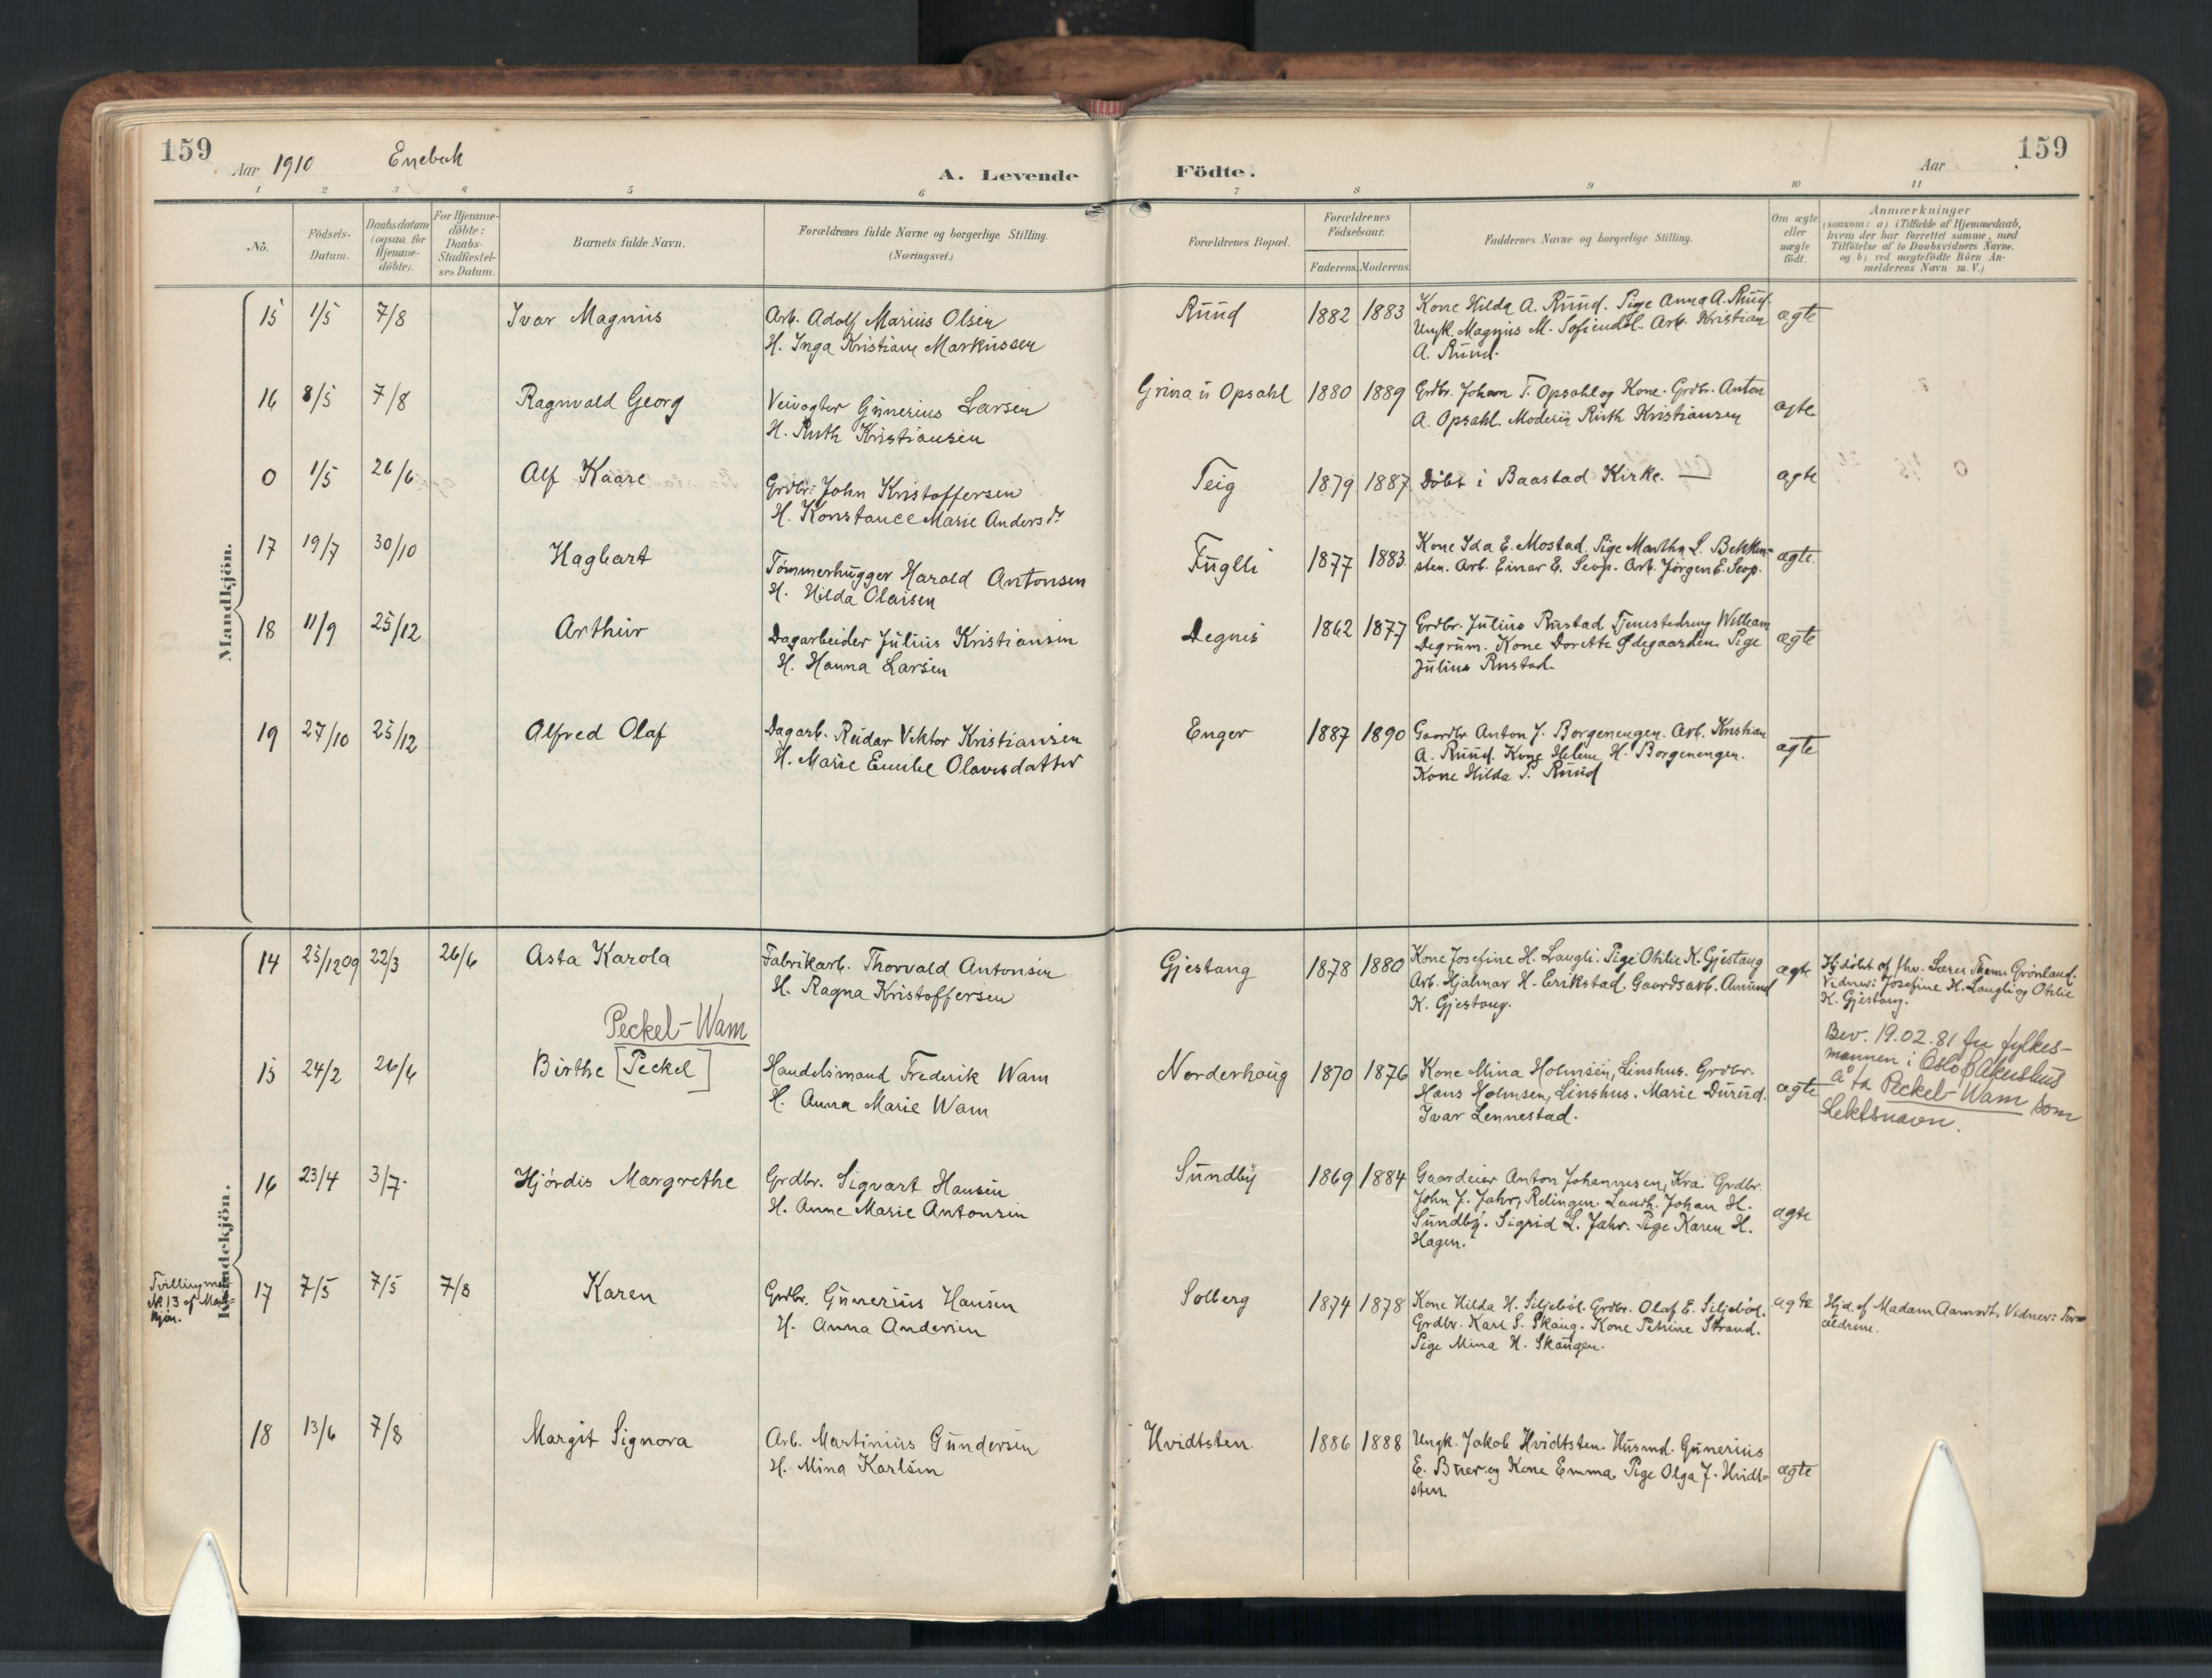 159
Aar 1910 Enebak
A. Levende Födte.
Aar
159
1 2 3 4 5 6 7 8 9 10 11
Nö.
Födsels-Datum.
Daabsdatum (ogsaa for Hjemme-döbte).
For Hjemme-döbte: Daabs-Stadfæstel-ses Datum.
Barnets fulde Navn.
Forældrenes fulde Navne og borgerlige Stilling.
(Næringsvei.)
Forældrenes Bopæl.
Forældrenes Födselsaar.
Faderens. Moderens.
Faddernes Navne og borgerlige Stilling.
Om ægte eller uægte födt.
Anmærkninger
(saasom: a) i Tilfælde af Hjemmedaab,
hvem der har forrettet samme, med
Tilföielse af to Daabsvidners Navne,
og b) ved uægtefödte Börn An-
melderens Navn m. V.)
Mandkjön.
15 1/5 7/8 Ivar Magnus
Arb. Adolf Marius Olsen
H. Inga Kristiane Markussen
Ruud 1882 1883
Kone Hilda A. Ruud. Pige Anna A. Ruud.
Ungk. Magnus M. Sofiendal. Arb. Kristian
A. Ruud.
ægte
16 8/5 7/8 Ragnvald Georg
Veivogter Gunerius Larsen
H. Ruth Kristiansen
Grina u Opsahl 1880 1889
Grdbr. Johan T. Opsahl og Kone. Grdbr. Anton
A. Opsahl. Moderen Ruth Kristiansen
ægte
0 1/5 26/6 Alf Kaare
Grdbr. John Kristoffersen
H. Konstance Marie Andersdr
Teig 1879 1887
Döbt i Baastad Kirke. —
ægte
17 19/7 30/10 Hagbart
Tømmerhugger Harald Antonsen
H. Hilda Olaisen
Fuglli 1877 1883
Kone Ida E. Mostad. Pige Martha L. Bekken-
sten. Arb. Einar E. Seop. Arb. Jørgen E. Seop.
ægte.
18 11/9 25/12 Arthur
Dagarbeider Julius Kristiansen
H. Hanna Larsen
Degnes 1862 1877
Grdbr. Julius Rustad Tjenestedreng William
Degrum. Kone Dorette Ødegaarden. Pige
Julius Rustad.
ægte
19 27/10 25/12 Alfred Olaf
Dagarb. Reidar Viktor Kristiansen
H. Marie Emilie Olavesdatter
Enger 1887 1890
Gaardbr Anton J. Borgenengen. Arb. Kristian
A. Ruud. Kone Helene H. Borgenengen.
Kone Hilda P. Ruud
ægte
Kvindekjön.
14 25/12 09 22/3 26/6 Asta Karola
Fabrikarb. Thorvald Antonsen
H. Ragna Kristoffersen
Gjestang 1878 1880
Kone Josefine H. Laugli. Pige Othilie K. Gjestang
Arb. Hjalmar H. Erikstad. Gaardsarb. Amund
K. Gjestang.
ægte
Hjdøbt af fhv. Lærer Grönland.
Vidner: Josefine H. Laugli og Othilie
K. Gjestang.
Peckel-Wam
15 24/2 26/6 Birthe [Peckel]
Handelsmand Frederik Wam
H. Anna Marie Wam
Norderhaug 1870 1876
Kone Mina Holmsen, Linshus. Grdbr.
Hans Holmsen, Linshus. Marie Durud.
Ivar Lennestad.
ægte
Bev. 19.02.81 fra fylkes-
mannen i Oslo & Akershus
å ta Peckel-Wam som
slektsnavn.
16 23/4 3/7. Hjördis Margrethe
Grdbr. Sigvart Hansen
H. Anne Marie Antonsen
Sundby 1869 1884
Gaardeier Anton Johannesen, Kra. Grdbr.
John J. Jahr, Relingen. Landh. Johan H.
Sundby. Sigrid L. Jahr. Pige Karen H.
Hagen.
ægte
Tvilling med
No 13 af Mand-
kjön.
17 7/5 7/5 7/8 Karen
Grdbr. Gunerius Hansen
H. Anna Andersen
Solberg 1874 1878
Kone Hilda H. Siljeböl. Grdbr. Olaf E. Siljeböl.
Grdbr. Karl S. Skaug. Kone Petrine Strand.
Pige Mina H. Skaugen.
ægte
Hjd. af Madam Aamodt. Vidner: For-
ældrene.
18 13/6 7/8 Margit Signora
Arb. Martinius Gundersen
H. Mina Karlsen
Hvidtsten. 1886 1888
Ungk. Jakob Hvidtsten. Husmd. Gunerius
E. Bner og Kone Emma. Pige Olga J. Hvidt-
sten.
ægte